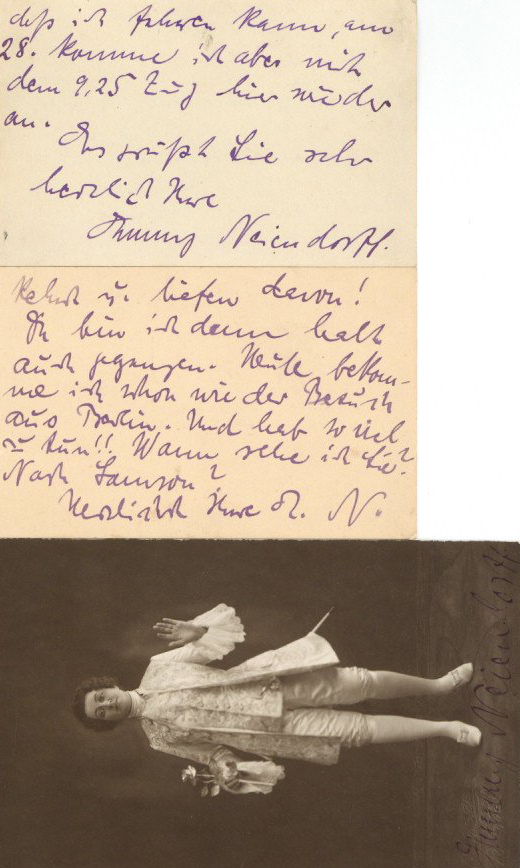 daß ich fahren kann, am
28. komme ich aber mit
dem 9,25 Zug hier wieder
an.
Es grüßt Sie sehr
herzlich Ihre
Emmy Neiendorff.
Kehrt u. liefen davon!
Da bin ich denn halt
auch gegangen. Heute bekom-
me ich schon wieder Besuch
aus Berlin. Und hab so viel
zu tun!! Wann sehe ich Sie?
Nach Samson?
Herzlichst Ihre E. N.
Emmy Neiendorff